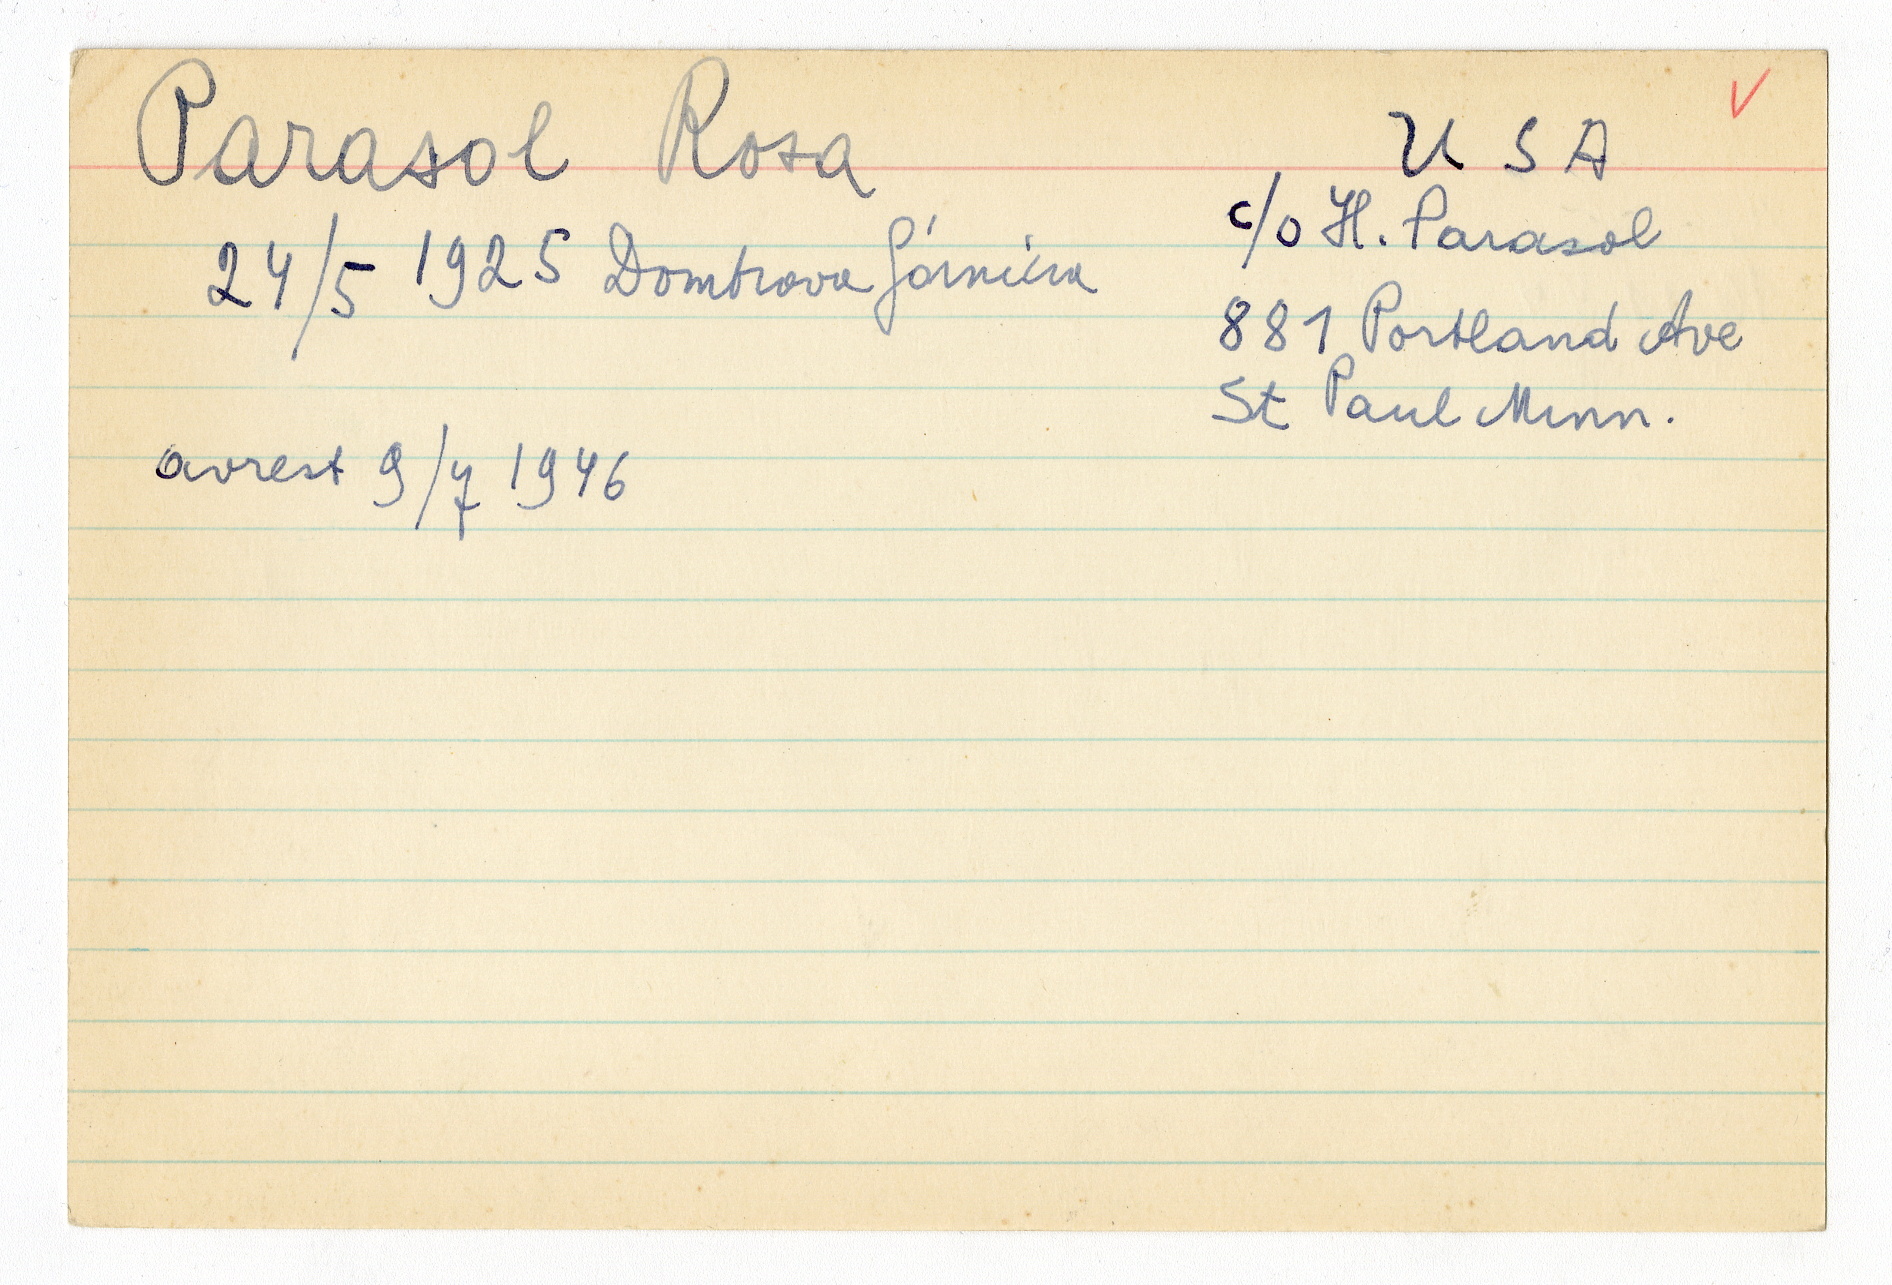 Parasol Rosa
24/5 1925 Dombrova Górnicza
avrest 9/7 1946
USA
c/o H. Parasol
881 Portland Ave
St Paul Minn.